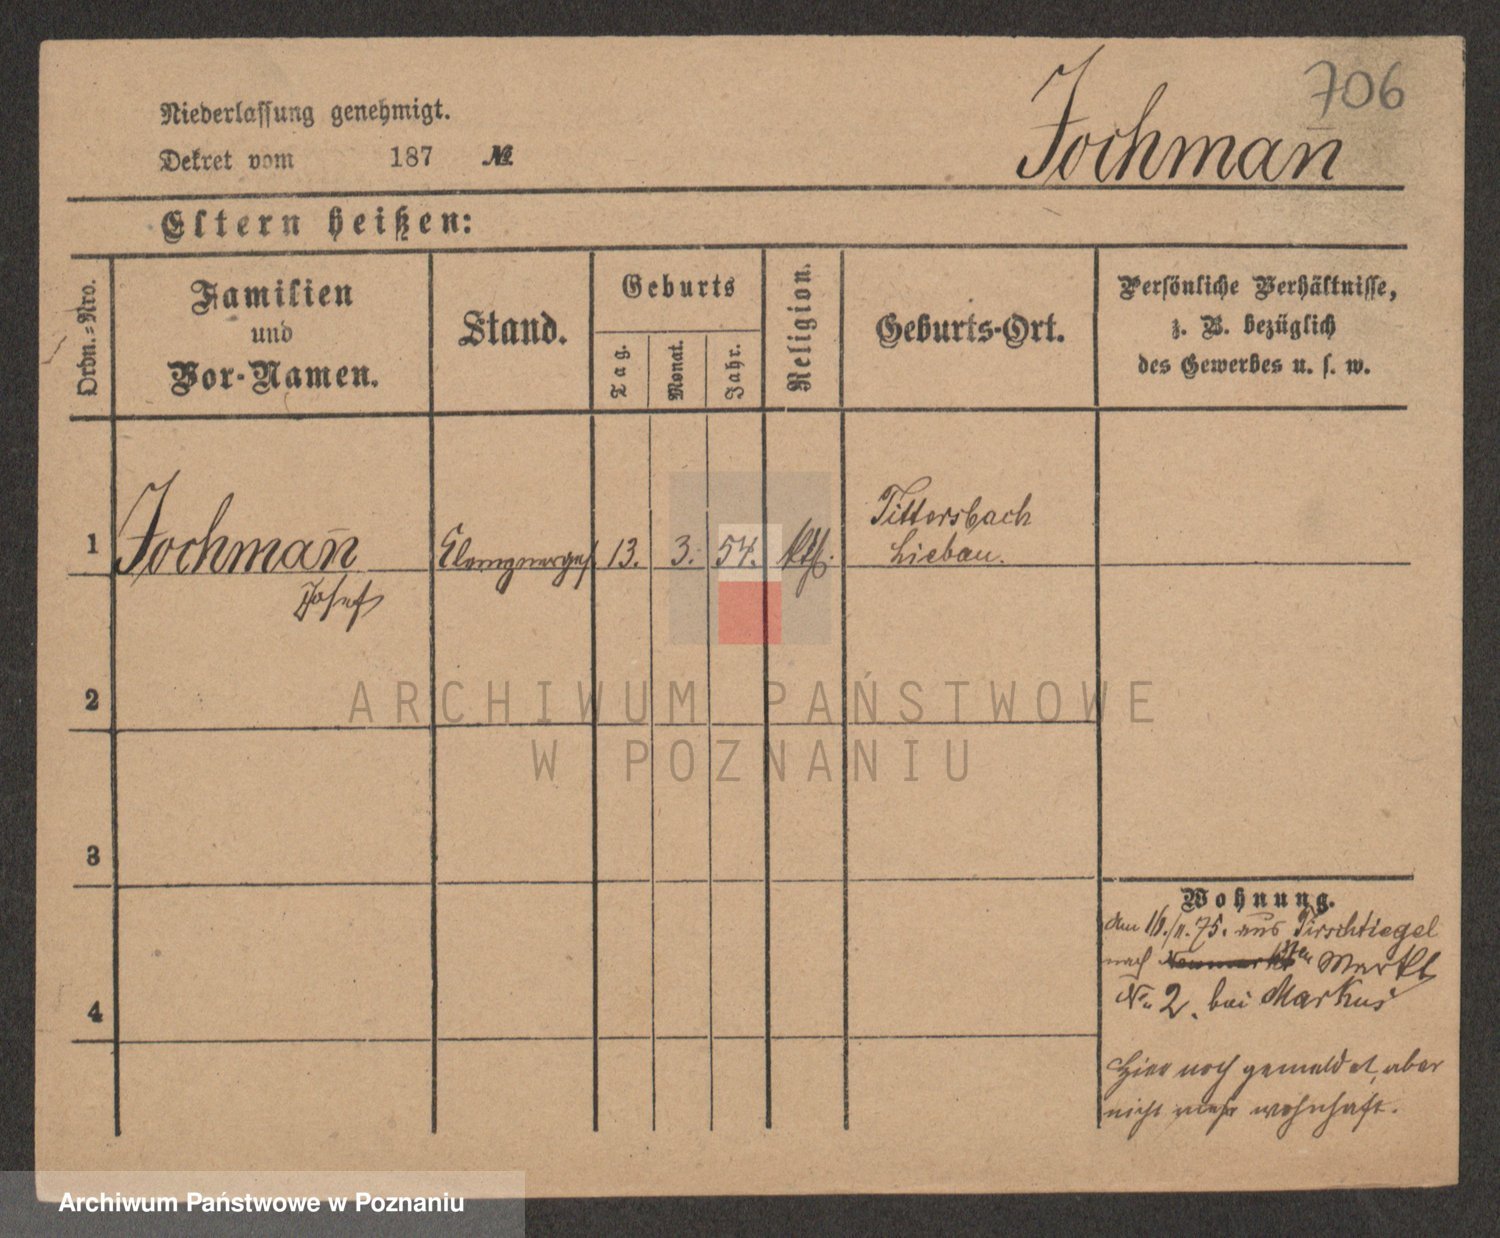 706
Jochman̄
Niederlassung genehmigt.
Dekret vom 187 №
Eltern heißen:
Ordn.=Nro.
Familien
und
Vor-Namen.
Stand.
Geburts
Tag.
Monat.
Jahr.
Religion.
Geburts-Ort.
Persönliche Verhältnisse,
z. B. bezüglich
des Gewerbes u. s. w.
1 Jochman̄ Klempnerges. 13. 3. 54. kth. Tittersbach
Liebau.
Josef
2
ARCHIWUM PAŃSTWOWE
W POZNANIU
3
Wohnung.
den 16./11. 75. aus Tirschtiegel
nach Markt
No 2. bei Markus
4
Hier noch gemeldet, aber
nicht mehr wohnhaft.
Archiwum Państwowe w Poznaniu